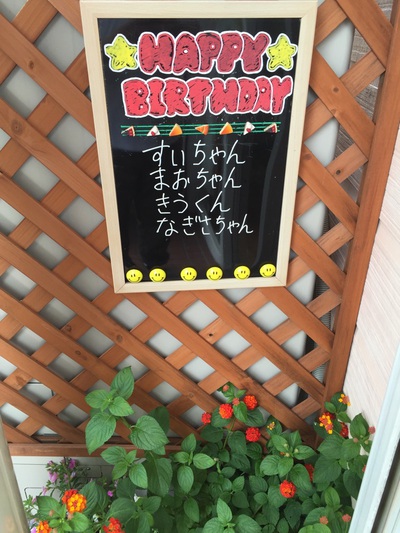 HAPPY
BIRTHDAY
すいちゃん
まおちゃん
きうくん
なぎさちゃん